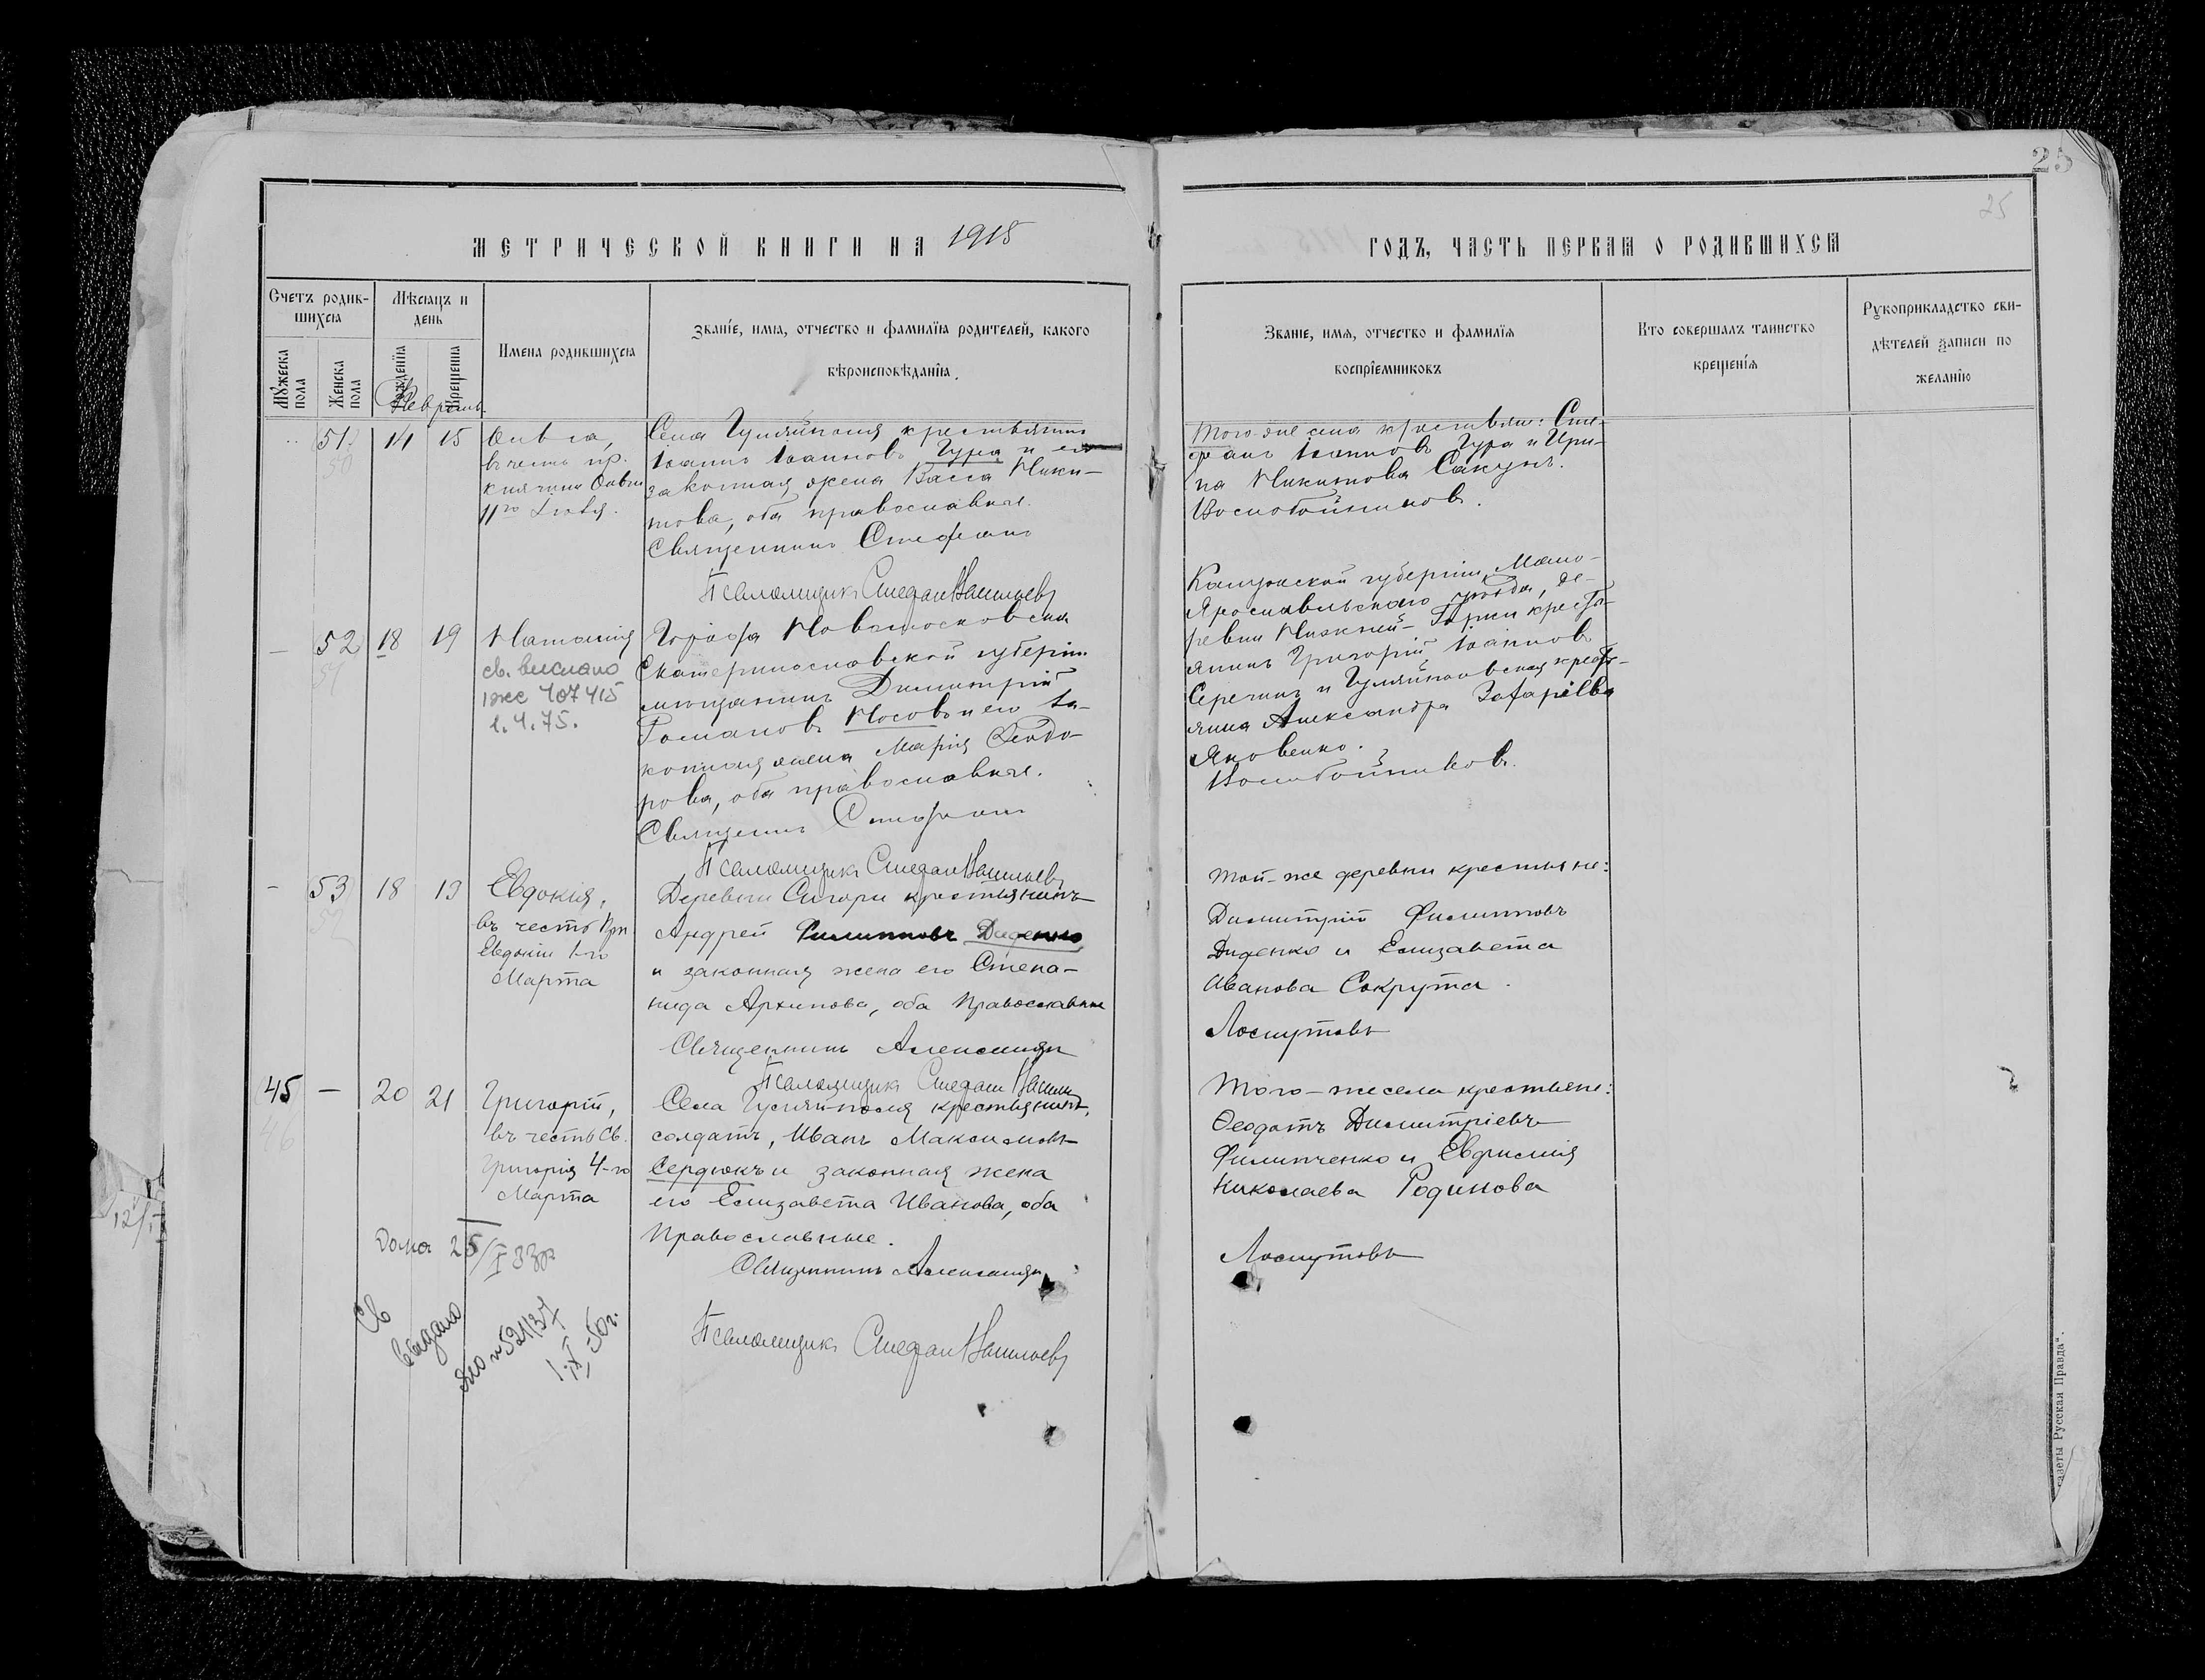 25
25
МЕТРИЧЕСКОЙ КНИГИ НА 1915
ГОДЪ, ЧАСТЬ ПЕРВАЯ О РОДИВШИХСЯ
Счетъ родив-
шихся
Мѣсяцъ и
день
Имена родившихся
Званіе, имя, отчество и фамилія родителей, какого
вѣроисповѣданія.
Званіе, имя, отчество и фамилія
воспріемниковъ
Кто совершалъ таинство
крещенія
Рукоприкладство сви-
дѣтелей записи по
желанію
Мужеска
пола
Женска
пола
Рожденія
Крещенія
Февраль
51
50
14
15
Ольга,
въ честь
княгини Ольги
11го Іюля.
Села Гуляйполя крестьянинъ
Іоаннъ Іоанновъ Гура и его
законная жена Васса Ники-
това, оба православные.
Священникъ Стефанъ
Псаломщикъ Стефан Васильевъ
Того-же села крестьяне: Сте-
фанъ Іоанновъ Гура и Ири-
на Никитова Сакунъ.
Воскобойниковъ.
—
52
51
18
19
Наталія
св. выслано
1 экс 407415
1.4.75.
Города Новомосковска
Екатеринославской губерніи
мѣщанинъ Димитрій
Романовъ Носовъ и его за-
конная жена Марія Ѳеодо-
рова, оба православные.
Священникъ Стефанъ
Псаломщикъ Стефан Васильевъ
Калужской губерніи Мало-
Ярославльскаго уѣзда, де-
ревни Нижней-Горки кресть-
янинъ Григорій Іоанновъ
Серегинъ и Гуляйпольская кресть-
янка Александра Захаріева
Яковенко.
Воскобойниковъ.
-
53
52
18
19
Евдокія,
въ честь Прп.
Евдокіи 1-го
Марта
Деревни Сигори крестьянинъ
Андрей Филипповъ Диденко
и законная жена его Степа-
нида Архипова, оба Православные
Священникъ Александръ
Псаломщикъ Стефан Васильевъ
Той-же деревни крестьяне:
Димитрій Филипповъ
Диденко и Елизавета
Иванова Сокрута.
Лоскутовъ
45
46
—
20
21
Григорій,
въ честь Св.
Григорія 4-го
Марта
Села Гуляй-поля крестьянинъ,
солдатъ, Иванъ Максимовъ
Сердюкъ и законная жена
его Елизавета Иванова, оба
Православные.
Священникъ Александръ
Псаломщикъ Стефан Васильевъ
Того-же села крестьяне:
Ѳеодотъ Димитріевъ
Филипченко и Евфимія
Николаева Родинова
Лоскутовъ
25/I 33г
Св
выдано
1.X-50г.
газеты „Русская Правда“.